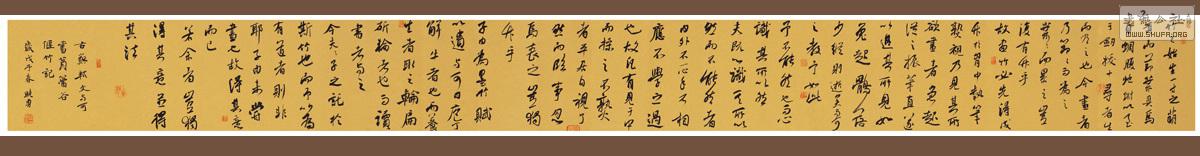 之始生一寸之萌
耳而節葉具焉
自蜩腹蛇蚹以至
于劍拔十尋者生
而有之也今畫者
乃節節而為之
葉葉而累之豈
復有竹乎
故畫竹必先得成
竹於胸中執筆
熟視乃見其所
欲畫者急起
從之振筆直遂
以追其所見如
兔起鶻落
少縱則逝矣與可
之教予如此
予不能然也而心
識其所以然
夫既心識其所以
然而不能然者
內外不一心手不相
應不學之過
也故凡有見於中
而操之不熟
者平居自視了
然而臨事忽
焉喪之豈獨
竹乎
子由為墨竹賦
以遺與可曰庖丁
解牛者也而養
生者取之輪扁
斫輪者也而讀
書者與之
今夫夫子之託於
斯竹也而予以為
有道者則非
耶子由未嘗
畫也故得其意
而已
若余者豈獨
得其意并得
其法
文與可
畫篔簹谷
偃竹記
歲戊子春
WWW.SHUFR.ORG